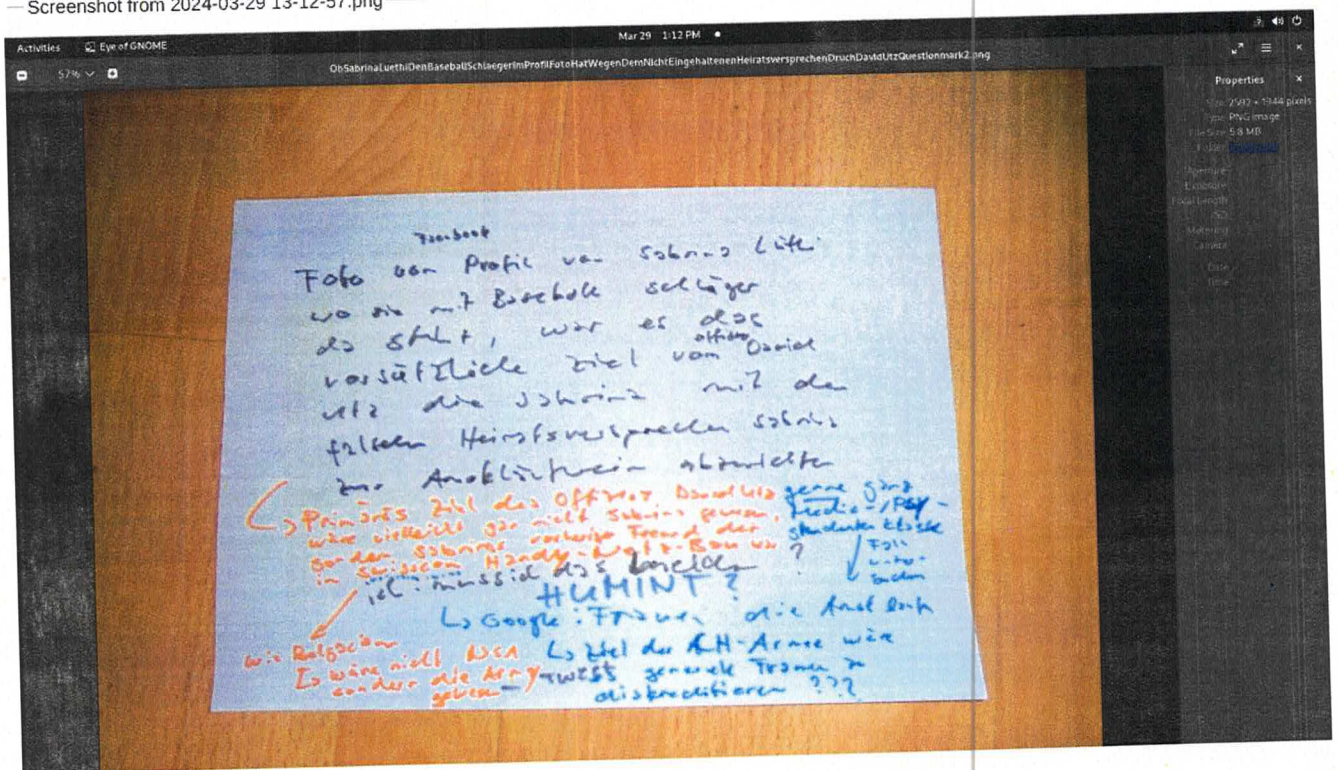 Screenshot from 2024-03-29 13-12-57.png
Activities Eye of GNOME
Mar 29 1:12 PM
57%
ObSabrinaLuethiDenBaseballSchlaegerImProfilFotoHatWegenDemNichtEingehaltenenHeiratsversprechenDruchDavidUtzQuestionmark2.png
Properties
Size 2592 × 1944 pixels
Type PNG image
File Size 5.8 MB
Folder
Aperture
Exposure
Focal Length
ISO
Metering
Camera
Date
Time
Facebook
Foto vom Profil von Sabrina Lüthi
wo sie mit Baseball schläger
da steht, war es das
offizier
vorsätzliche Ziel vom David
Utz die Sabrina mit den
falschen Heiratsversprechen Sabrina
zur
Primäres Ziel des Offizier David Utz
wäre vielleicht gar nicht Sabrina gewesen,
sondern Sabrinas vorherige Freund der
in Swisscom Handy-Netz-Bau war ?
genre ganz
Media-/PSY-
studenten
Fall
ich: müsste ich das
HUMINT?
Google: Frauen die
wie Belgacom
wäre nicht NSA
sondern die Army
gewesen
Ziel der CH-Armee wäre
generell Frauen zu
diskreditieren ???